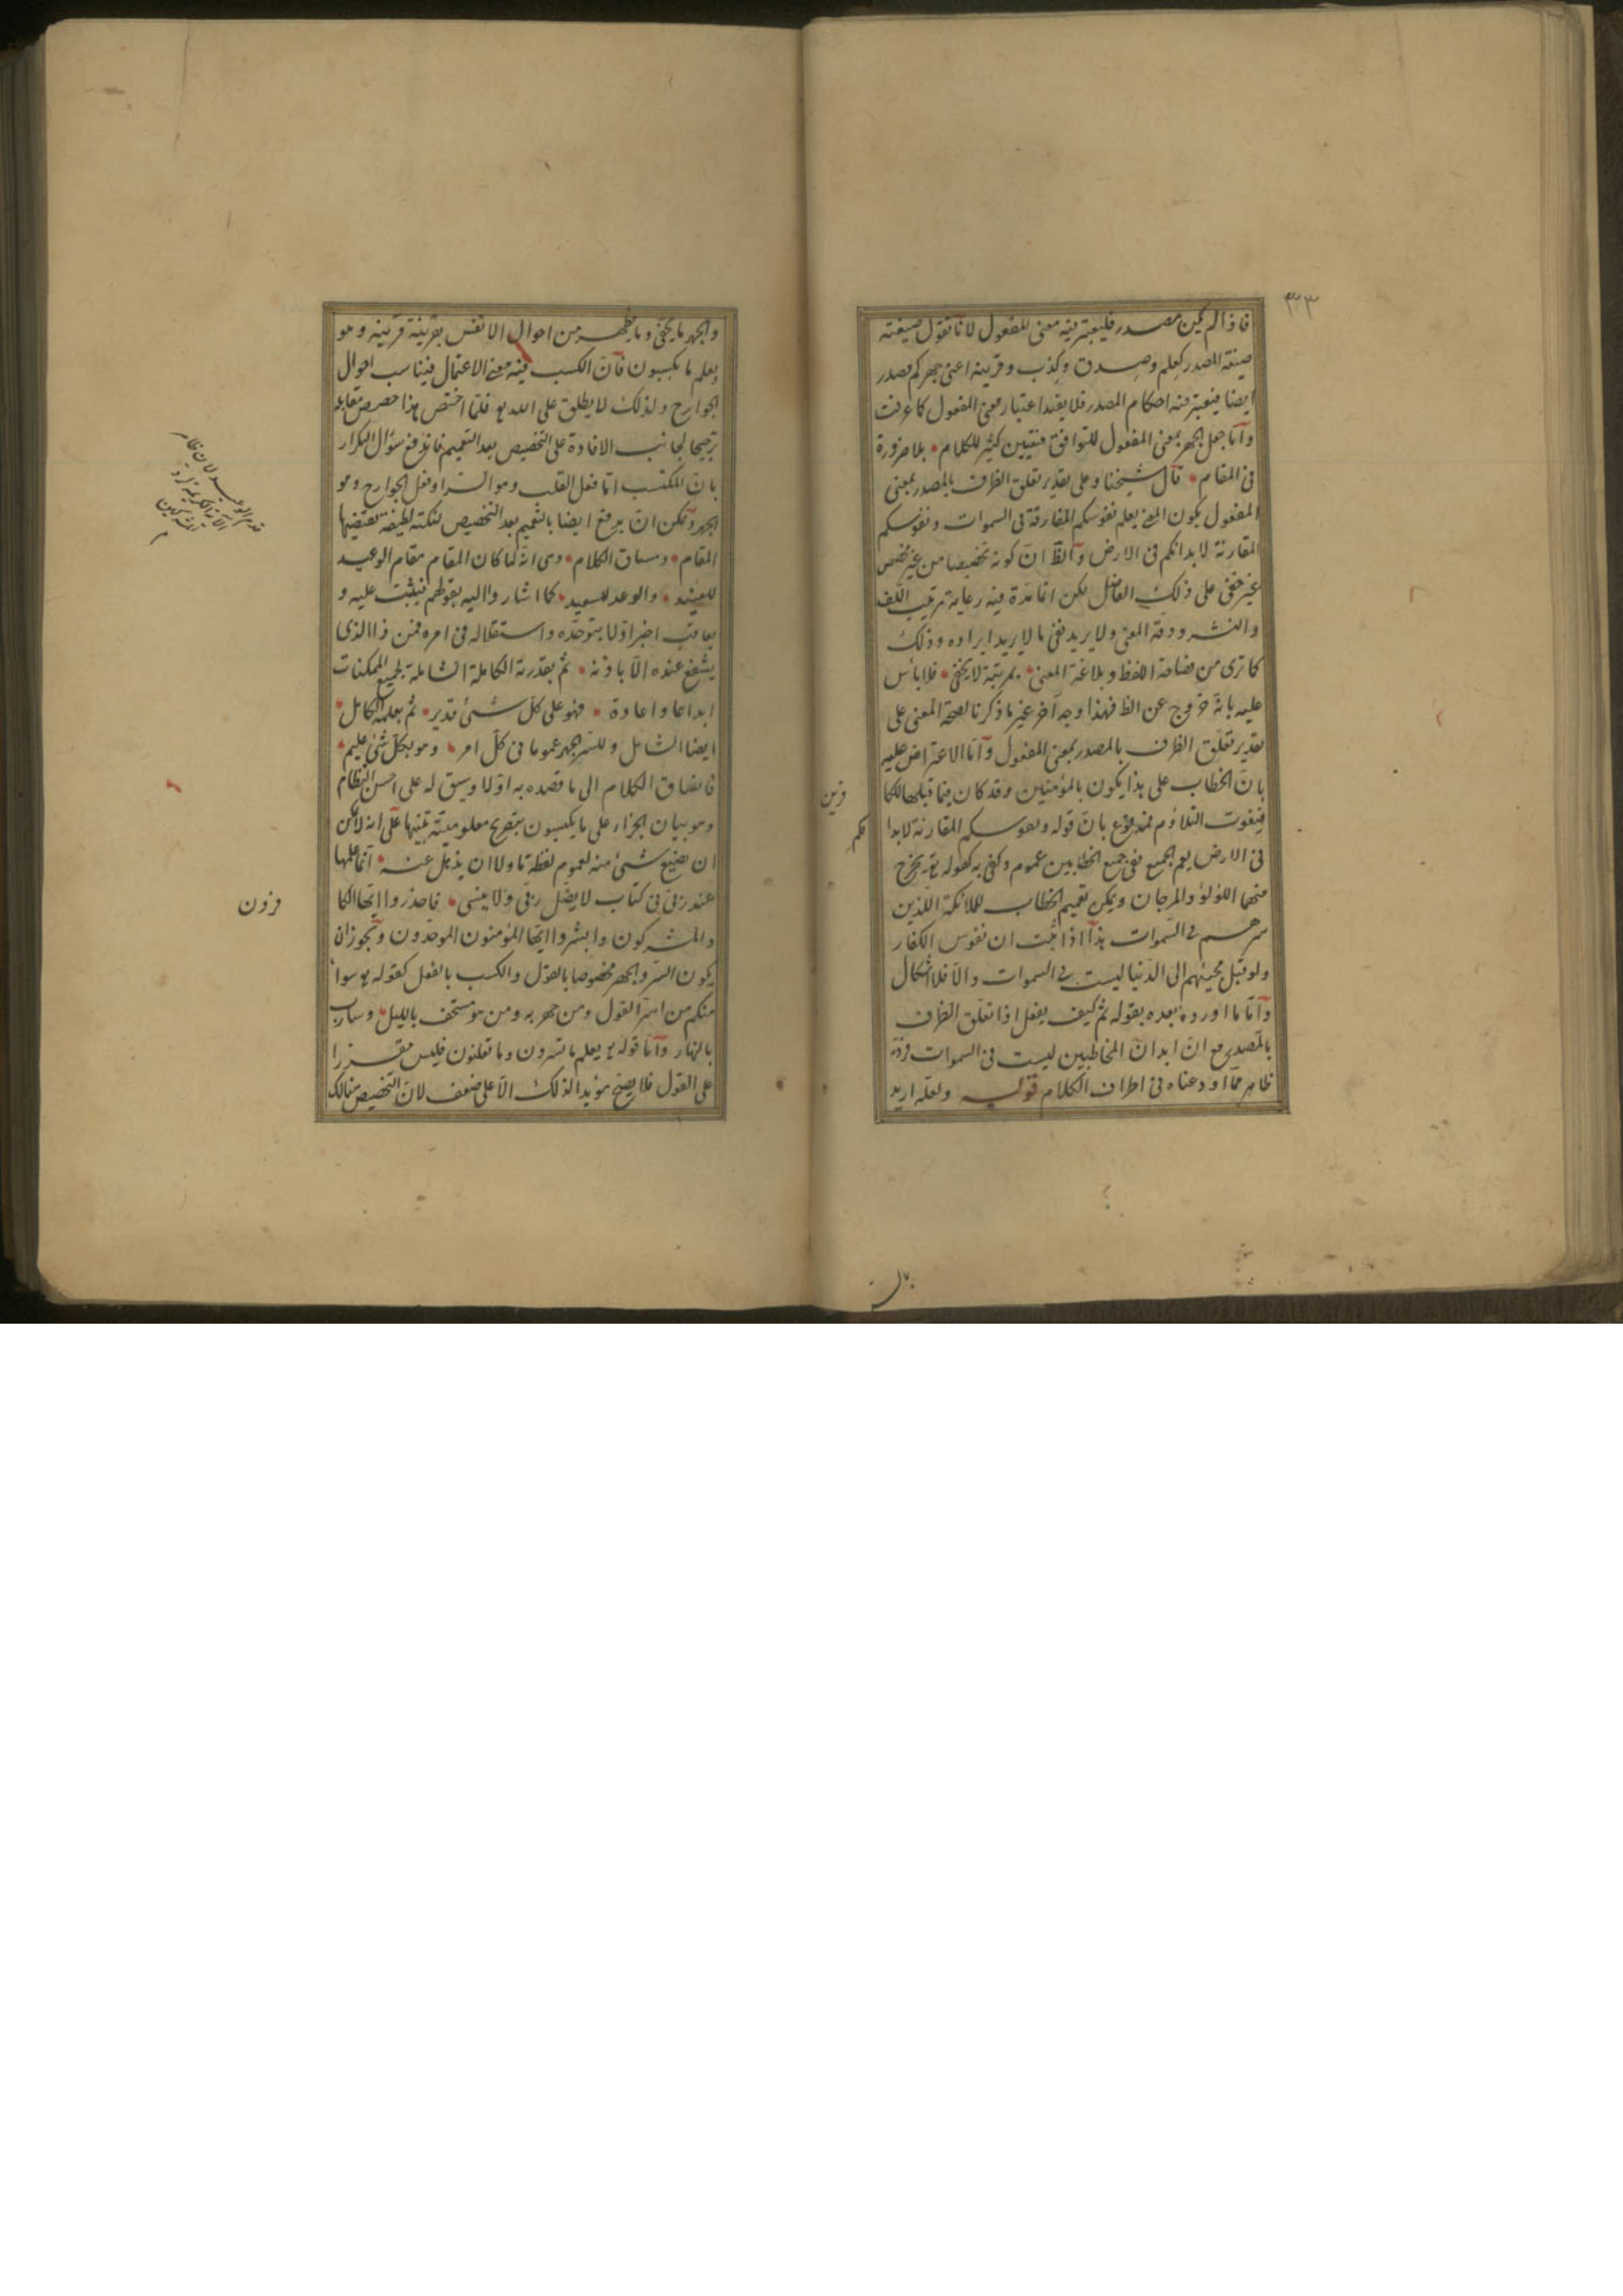 ٣٢٣
فاذا لم يكن مصدر فليعتبر فيه معنى المفعول لانا نقول صيغته
صيغة المصدر كعلم وصدق وكذب وقرينه اعنى جهركم مصدر
ايضا فيعتبر فيه احكام المصدر فلا يفيد اعتبار معنى المفعول كما عرفت
وأما جعل الجهر بمعنى المفعول للتوافق فتغيير كثير للكلام بلا ضرورة
فى المقام قال شيخنا وعلى تقدير تعلق الظرف بالمصدر بمعنى
المفعول يكون المعنى يعلم نفوسكم المفارقة فى السموات ونفوسكم
المقارنة لابدانكم فى الارض والظ ان كونه تخصيصا من غير مخصص
غير خفى على ذلك الفاضل لكن افادة فيه رعاية ترتيب اللف
والنشر ودقة المعنى ولا يريد نفى ما لا يريد ايراده وذلك
كما ترى من فصاحة اللفظ وبلاغة المعنى بمرتبة لا يخفى فلا بأس
عليه بانه خروج عن الظ فهذا وجه آخر غير ما ذكرنا لصحة المعنى على
تقدير تعلق الظرف بالمصدر بمعنى المفعول وأما الاعتراض عليه
بان الخطاب على هذا يكون بالمؤمنين وقد كان فيما قبلها للكا
فرين
فيفوت التلاؤم فمدفوع بان قوله ونفوسكم المقارنة لابدا
نكم
فى الارض يعم الجميع ففى جميع الخطابين عموم وكفى به كقوله تع يخرج
منهما اللؤلؤ والمرجان ويمكن تعميم الخطاب للملائكة اللذين
سرهم فى السموات هذا اذا ثبت ان نفوس الكفار
ولو قبل مجيئهم الى الدنيا ليست فى السموات والا فلا اشكال
وأما ما اورده بعده بقوله ثم كيف يفعل اذا تعلق الظرف
بالمصدر مع ان ابدان المخاطبين ليست فى السموات فرده
ظاهر مما اودعناه فى اطراف الكلام قوله ولعله اريد
والجهر ما يخفى وما يظهر من احوال الانفس بقرينة قرينه وهو
ويعلم ما يكسبون فان الكسب فيه معنى الاعتمال فيناسب احوال
الجوارح ولذلك لا يطلق على الله تع فلما اختص هذا خصص مقابله
ترجيحا لجانب الافادة على التخصيص بعد التعميم فاندفع سؤال التكرار
بان المكتسب اما فعل القلب وهو السر او فعل الجوارح وهو
الجهر ويمكن ان يدفع ايضا بالتعميم بعد التخصيص لنكتة لطيفة تقتضيها
المقام ومساق الكلام وهى انه لما كان المقام مقام الوعيد
للعنيد والوعد للسعيد كما اشاروا اليه بقولهم فيثبت عليه و
يعاقب اخبر اولا بتوحده واستقلاله فى امره فمن ذا الذى
يشفع عنده الا باذنه ثم بقدرته الكاملة الشاملة لجميع الممكنات
ابداعا واعادة فهو على كل شئ قدير ثم بعلمه الكامل
ايضا الشامل وللسر والجهر عموما فى كل امر وهو بكل شئ عليم
فانساق الكلام الى ما قصده به اولا وسيق له على احسن النظام
وهو بيان الجزاء على ما يكسبون بتصريح معلوميته تنبيها على انه لا يمكن
ان يضيع شئ منه لعموم لفظة ما ولا ان يذهل عنه انما علمها
عند ربى فى كتاب لا يضل ربى ولا ينسى فاحذروا ايها الكا
فرون
والمشركون وابشروا ايها المؤمنون الموحدون ويجوز ان
يكون السر والجهر مخصوصا بالقول والكسب بالفعل كقوله تع سواء
منكم من اسر القول ومن جهر به ومن هو مستخف بالليل وسارب
بالنهار وأما قوله تع يعلم ما تسرون وما تعلنون فليس مقتصرا
على القول فلا يصح مؤيدا لذلك الا على ضعف لان التخصيص هنالك